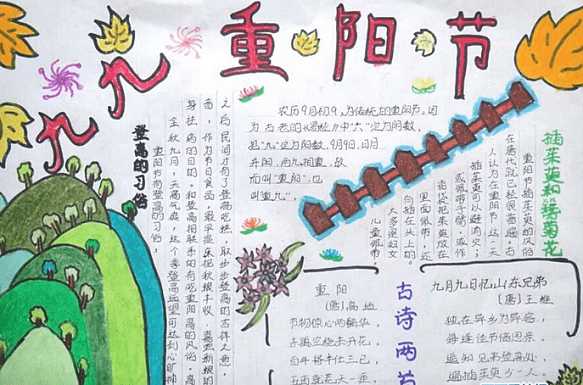 九九重阳节
农历9月初9,为传统的重阳节。因
为古老的《易经》中"六"定为阴数,
把"九"定为阳数,9月9日,日月
并阳,两九相重,故
叫"重阳",也
叫"重九"。
登高的习俗
重阳节有登高的习俗,
金秋九月,天高气爽,这个季节登高远望可达到心旷神
身祛病的目的。和登高相联系的有吃重阳糕的风俗。高
插茱萸和簪菊花
重阳节插茱萸的风俗
在唐代就已经很普遍。古
人认为在重阳节这一天
插茱萸可以避难消灾;
或佩带于臂,或作
香袋把茱萸放在
里面佩带,还
有插在头上的。
大多是妇女
儿童佩带,
古诗两首
重阳
(唐)高适
节物惊心两鬓华,
东篱空绕未开花。
百年将半仕三已,
五亩就荒天一
九月九日忆山东兄弟
(唐)王维
独在异乡为异客,
每逢佳节倍思亲。
遥知兄弟登高处,
遍插茱萸少一人。